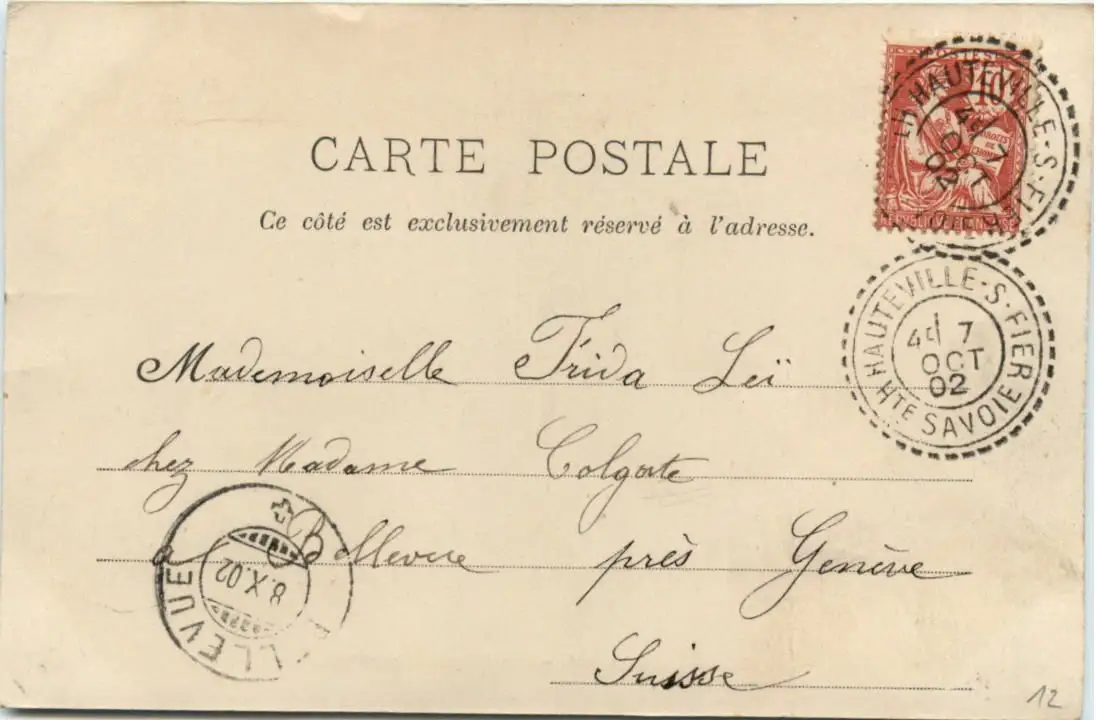 POSTES
10
DROITS
DE
L'HOMME
HAUTEVILLE-S-FIER
4E 7
OCT
02
CARTE POSTALE
Ce côté est exclusivement réservé à l'adresse.
HAUTEVILLE-S-FIER
4E 7
OCT
02
HTE SAVOIE
Mademoiselle Frida Leï
chez Madame Colgate
à Bellevue près Genève
Suisse
BELLEVUE
8.X.02
12